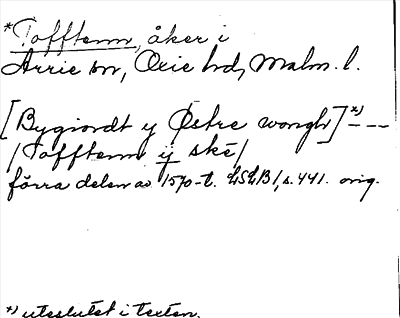 *Tofftenn, åker i
Arrie sn, Oxie hd, Malm. l.
[Bygiordt y Østre wongh]*) ---
/Tofftenn ij ske/
förra delen av 1570-t. LSLB1, s. 441. orig.
*) uteslutet i texten.